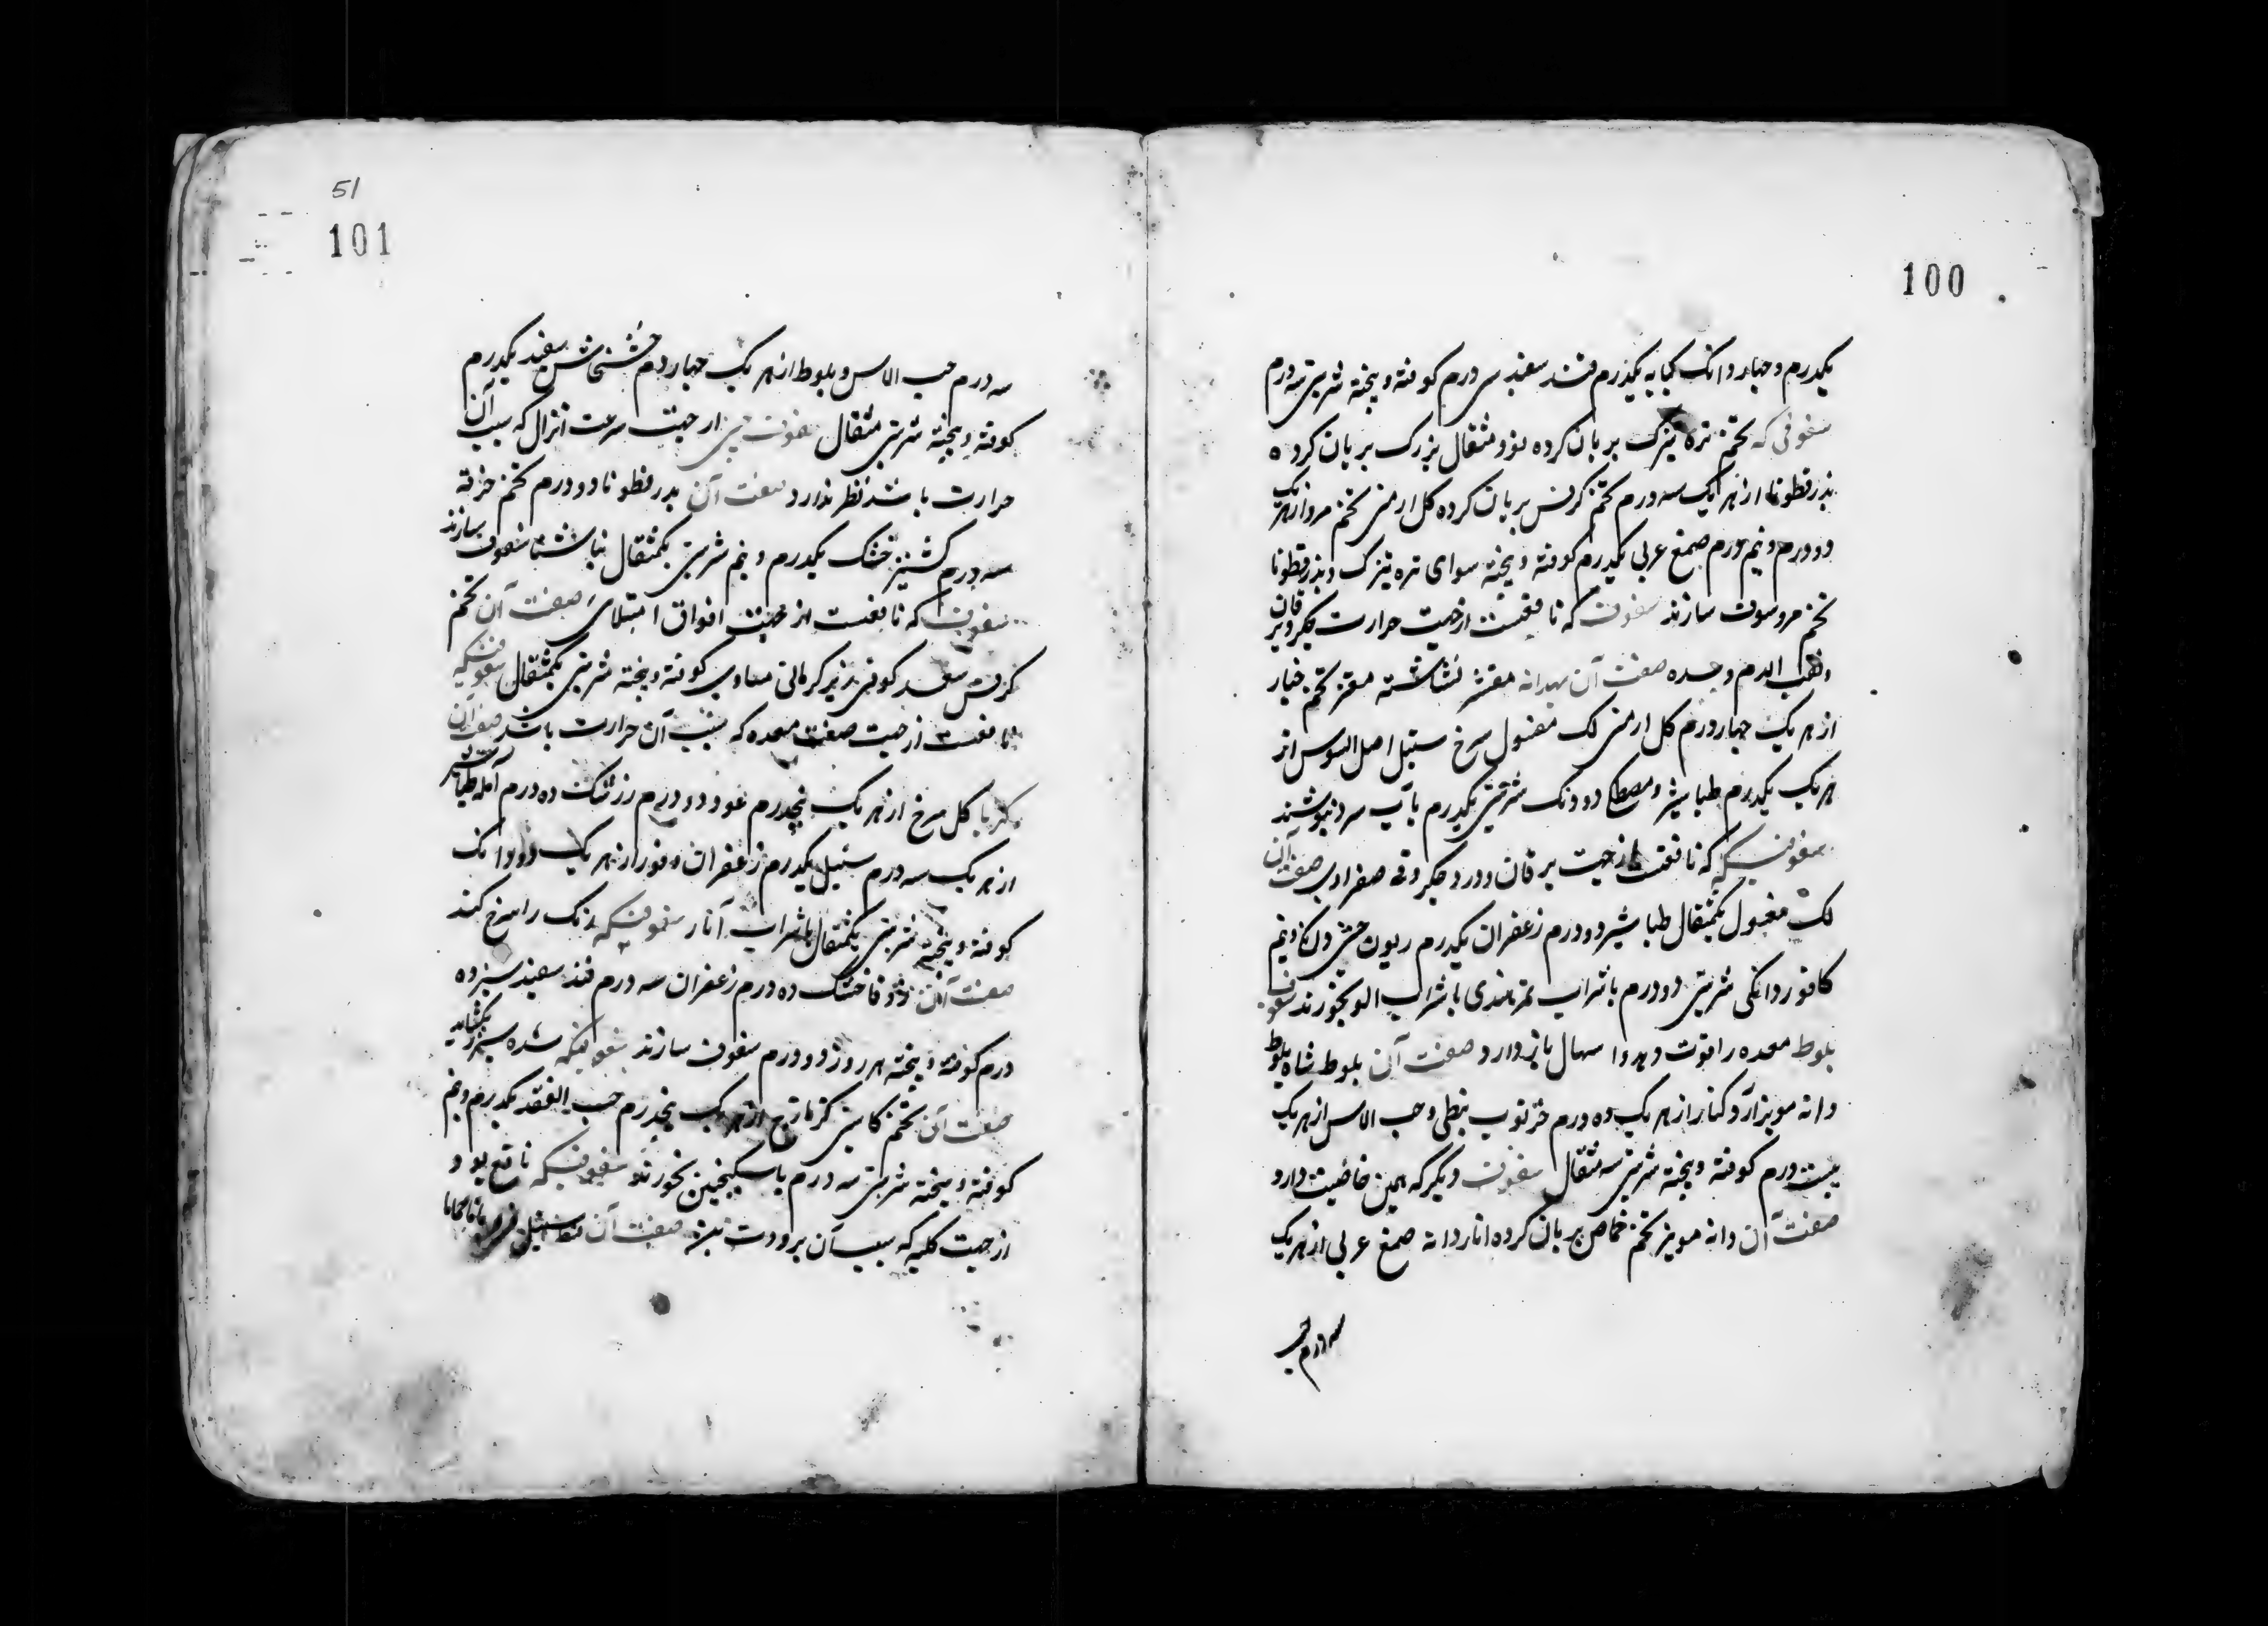 100
یکدرم و چهار دانک کبابه یکدرم قند سفید سی درم کوفته و بیخته شربتی سه درم
سفوفی که تخم تره تیزک بریان کرده نود مثقال بزرک بریان کرده
بذر قطونا از هر یک سه درم تخم کرفس بریان کرده کل ارمنی تخم مرو از هر یک
دو درم و نیم درم صمغ عربی یکدرم کوفته و بیخته سوای تره تیزک و بذر قطونا
تخم مرو سوف سازند سفوف که نافعست از جهت حرارت جکر و یرقان
و نفث الدم و معده صفت آن بهدانه مقشر نشاسته مغز تخم خیار
از هر یک چهار درم کل ارمنی لک مغسول سرخ سنبل اصل السوس از
هر یک یکدرم طباشیر و مصطکی دو دنک شربتی یکدرم بآب سرد بنوشند
سفوفیکه که نافعست از جهت یرقان و درد جکر و قی صفراوی صفت آن
لک مغسول یکمثقال طباشیر دو درم زعفران یکدرم ریوند چینی و نیم
کافور دانکی شربتی دو درم با شراب تمر هندی یا شراب الو بخورند سفوف
بلوط معده را قوت دهد و اسهال باز دارد صفت آن بلوط شاه بلوط
دانه مویز آرد کنار از هر یک ده درم خرنوب نبطی و حب الاس از هر یک
بیست درم کوفته و بیخته شربتی سه مثقال سفوف دیگر که همین خاصیت دارد
صفت آن دانه مویز تخم حماض بریان کرده انار دانه صمغ عربی از هر یک
سه درم حب
51
101
سه درم حب الاس و بلوط از هر یک چهار درم خشخاش سفید یکدرم
کوفته و بیخته شربتی مثقال سفوف از جهت سرعت انزال که سبب آن
حرارت باشد نظر ندارد صفت آن بذر قطونا دو درم تخم خرفه
سه درم کشنیز خشک یکدرم و نیم شربتی یکمثقال ناشتا سفوف سازند
سفوف که نافعست از جهت افواق امتلای صفت آن تخم
کرفس سعد کوفی زیره کرمانی مساوی کوفته و بیخته شربتی یکمثقال سفوفیکه
نافعست از جهت ضعف معده که سبب آن حرارت باشد صفت آن
کهربا کل سرخ از هر یک پنجدرم عود دو درم زرشک ده درم آمله طباشیر
از هر یک سه درم سنبل یکدرم زعفران و فور از هر یک دو دانک
کوفته و بیخته شربتی یکمثقال با شراب انار سفوفیکه رنک را سرخ کند
صفت آن زوفا خشک ده درم زعفران سه درم قند سفید سیزده
درم کوفته و بیخته هر روز دو درم سفوف سازند سفوفیکه سده سپرز بکشاید
صفت آن تخم کاسنی کزمازج از هر یک پنجدرم حب الفقد یکدرم و نیم
کوفته و بیخته شربتی سه درم با سکنجبین بخورند سفوفیکه نافع بود
از جهت کلیه که سبب آن برودت صفت آن